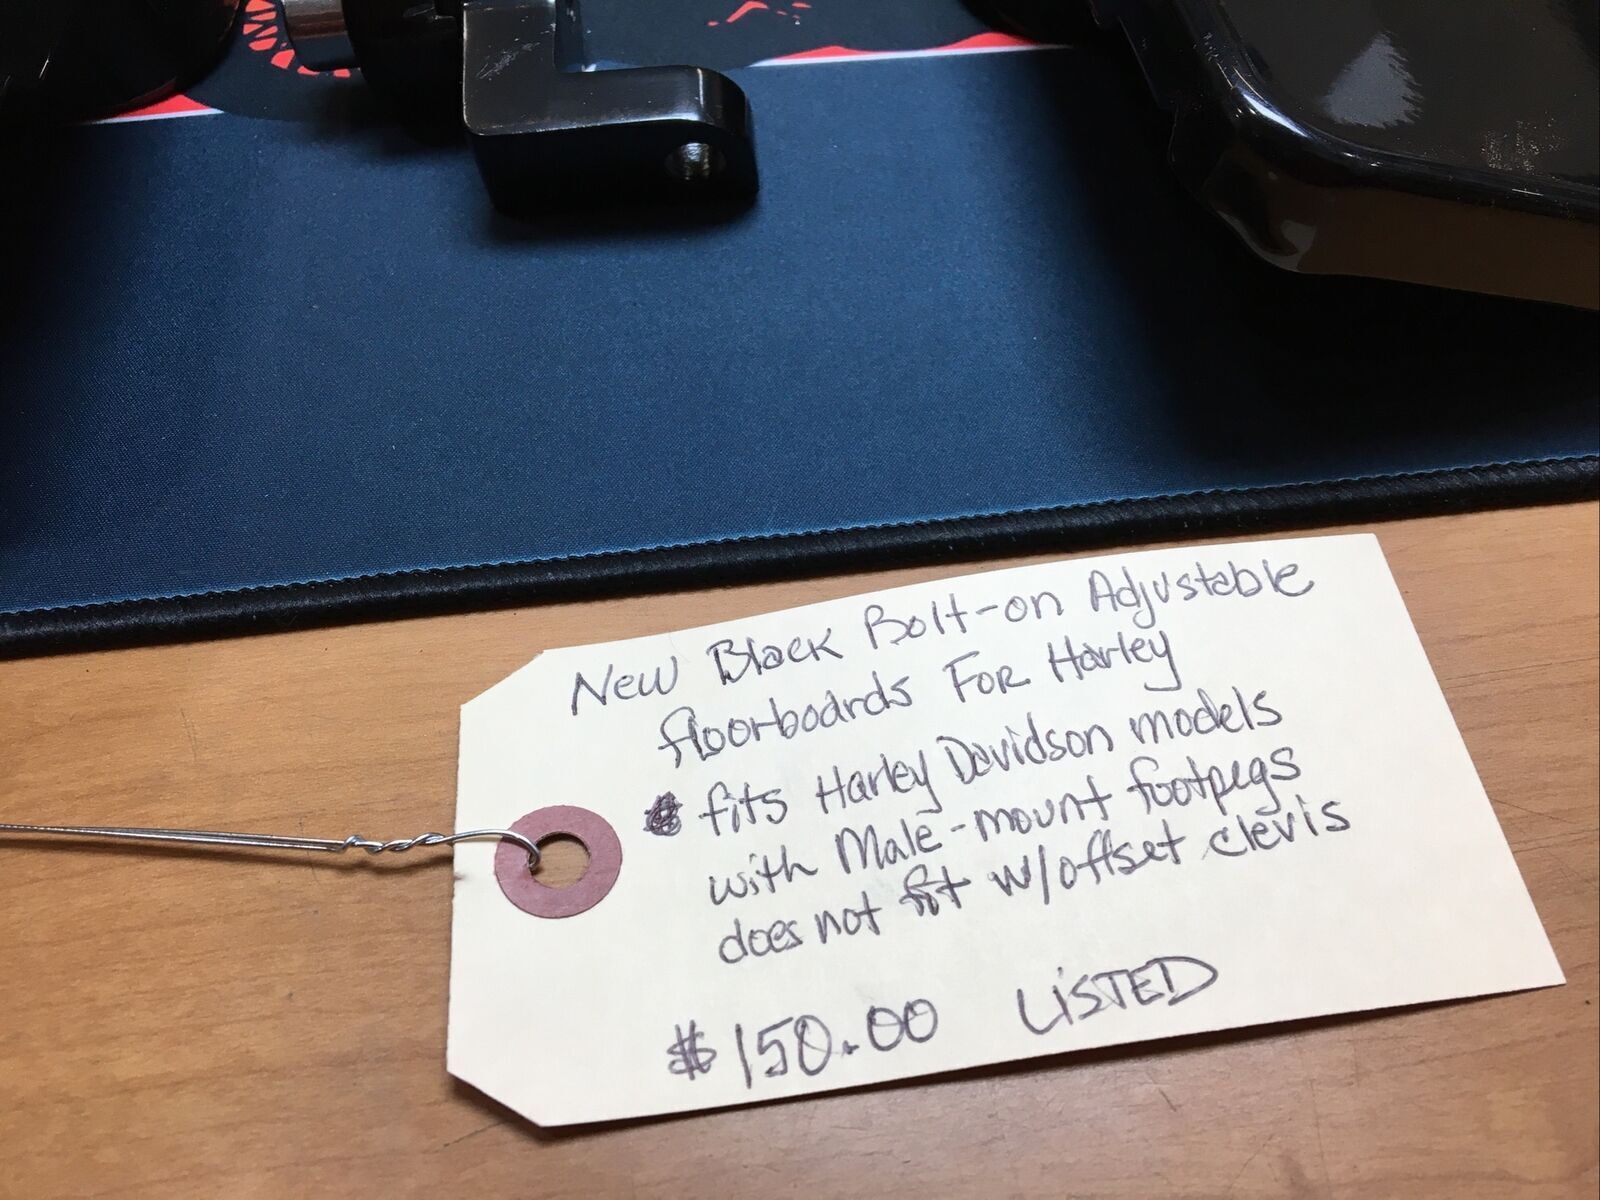 New Black Bolt-on Adjustable
floorboards For Harley
fits Harley Davidson models
with Male-mount footpegs
does not fit w/offset clevis
$150.00 LiSTED